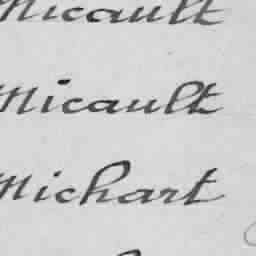 Micault
Micault
Michart